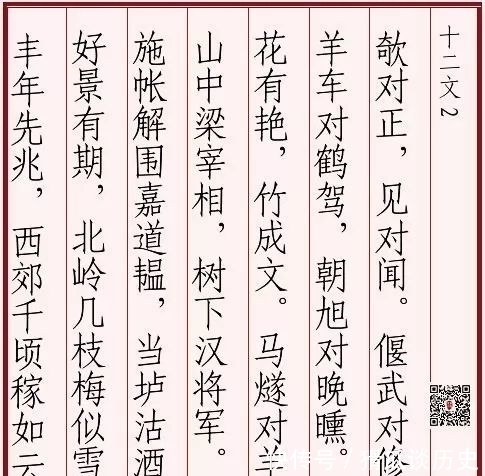 十二文2
欹对正，见对闻。偃武对修
羊车对鹤驾，朝旭对晚曛。
花有艳，竹成文。马燧对羊
山中梁宰相，树下汉将军。
施帐解围嘉道韫，当垆沽酒
好景有期，北岭几枝梅似雪
丰年先兆，西郊千顷稼如云